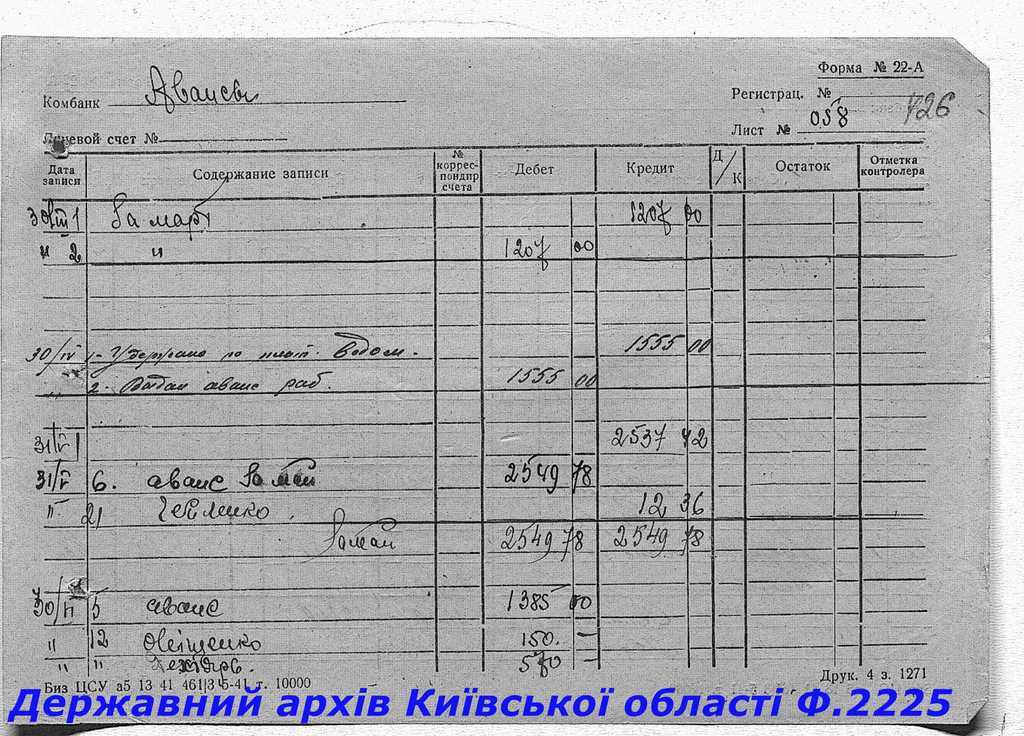 Форма № 22-А
Комбанк Авансы
Регистрац. №
Лист № 058 126
Лицевой счет №
Дата записи Содержание записи № коррес-пондир счета Дебет Кредит Д/К Остаток Отметка контролера
30/III 1 За март 1207 00
" 2 " 1207 00
30/IV 1 - Удержано по плат. ведом. 1555 00
" 2 - Выдан аванс раб. 1555 00
31/V 1 2537 42
31/V 6. аванс за май 2549 78
" 21 12 36
За май 2549 78 2549 78
30/VI 5 аванс 1385 00
" 12 150. -
" " 570 -
Биз ЦСУ а5 13 41 461|3 5-41 г. 10000
Друк. 4 з. 1271
Державний архів Київської області Ф.2225